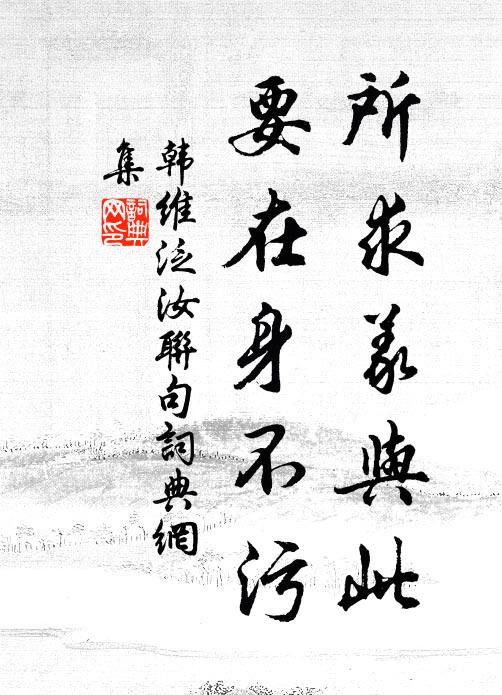 所求義與此
要在身不污
韩維泛汝聯句詞典網
集
詞典
网印